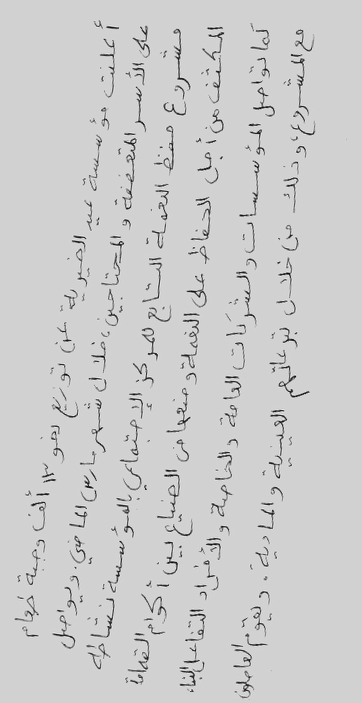 أعلنت مؤسسة عيد الخيرية عن توزيع نحو ١٣ ألف وجبة طعام
على الأسر المتعففة والمحتاجين، خلال شهر مارس الماضي. ويواصل
مشروع حفظ النعمة التابع للمركز الإجتماعي بالمؤسسة نشاطه
المكثف من أجل الحفاظ على النعمة ومنعها من الضياع بين أكوام القمامة
كما تواصل المؤسسات والشركات العامة والخاصة والأفراد التفاعل البناء
مع المشروع، وذلك من خلال تبرعاتهم العينية والمادية. ويقوم العاملون